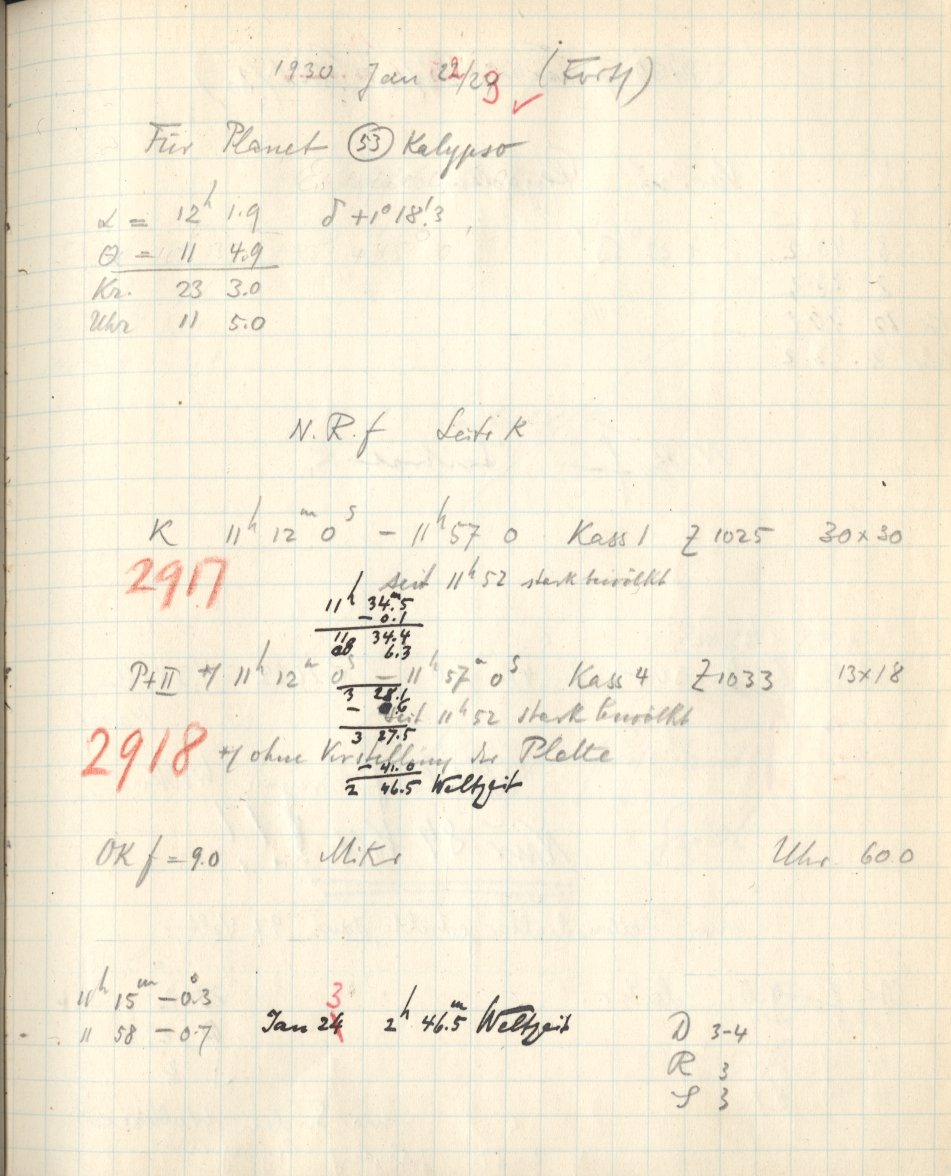 1930 Jan 22/23 (Forts)
Für Planet (53) Kalypso
α = 12h 1.9 δ +1° 18'.3
Θ = 11 4.9
Kr. 23 3.0
Uhr 11 5.0
N.R.f Leitr K
K 11h 12m 0s – 11h 57 0 Kass 1 Z 1025 30×30
2917 seit 11h 52 stark bewölkt
11h 34m.5
– 0.1
11 34.4
08 6.3
P+II +) 11h 12m 0s – 11h 57m 0s Kass 4 Z 1033 13×18
3 28.1
– 0.6
seit 11h 52 stark bewölkt
3 27.5
2918 +) ohne Verstellung der Platte
– 41.0
2 46.5 Weltzeit
OK f = 9.0 Mikr Uhr 60.0
11h 15m – 0.3
11 58 – 0.7 Jan 23 2h 46m.5 Weltzeit D 3-4
R 3
S 3